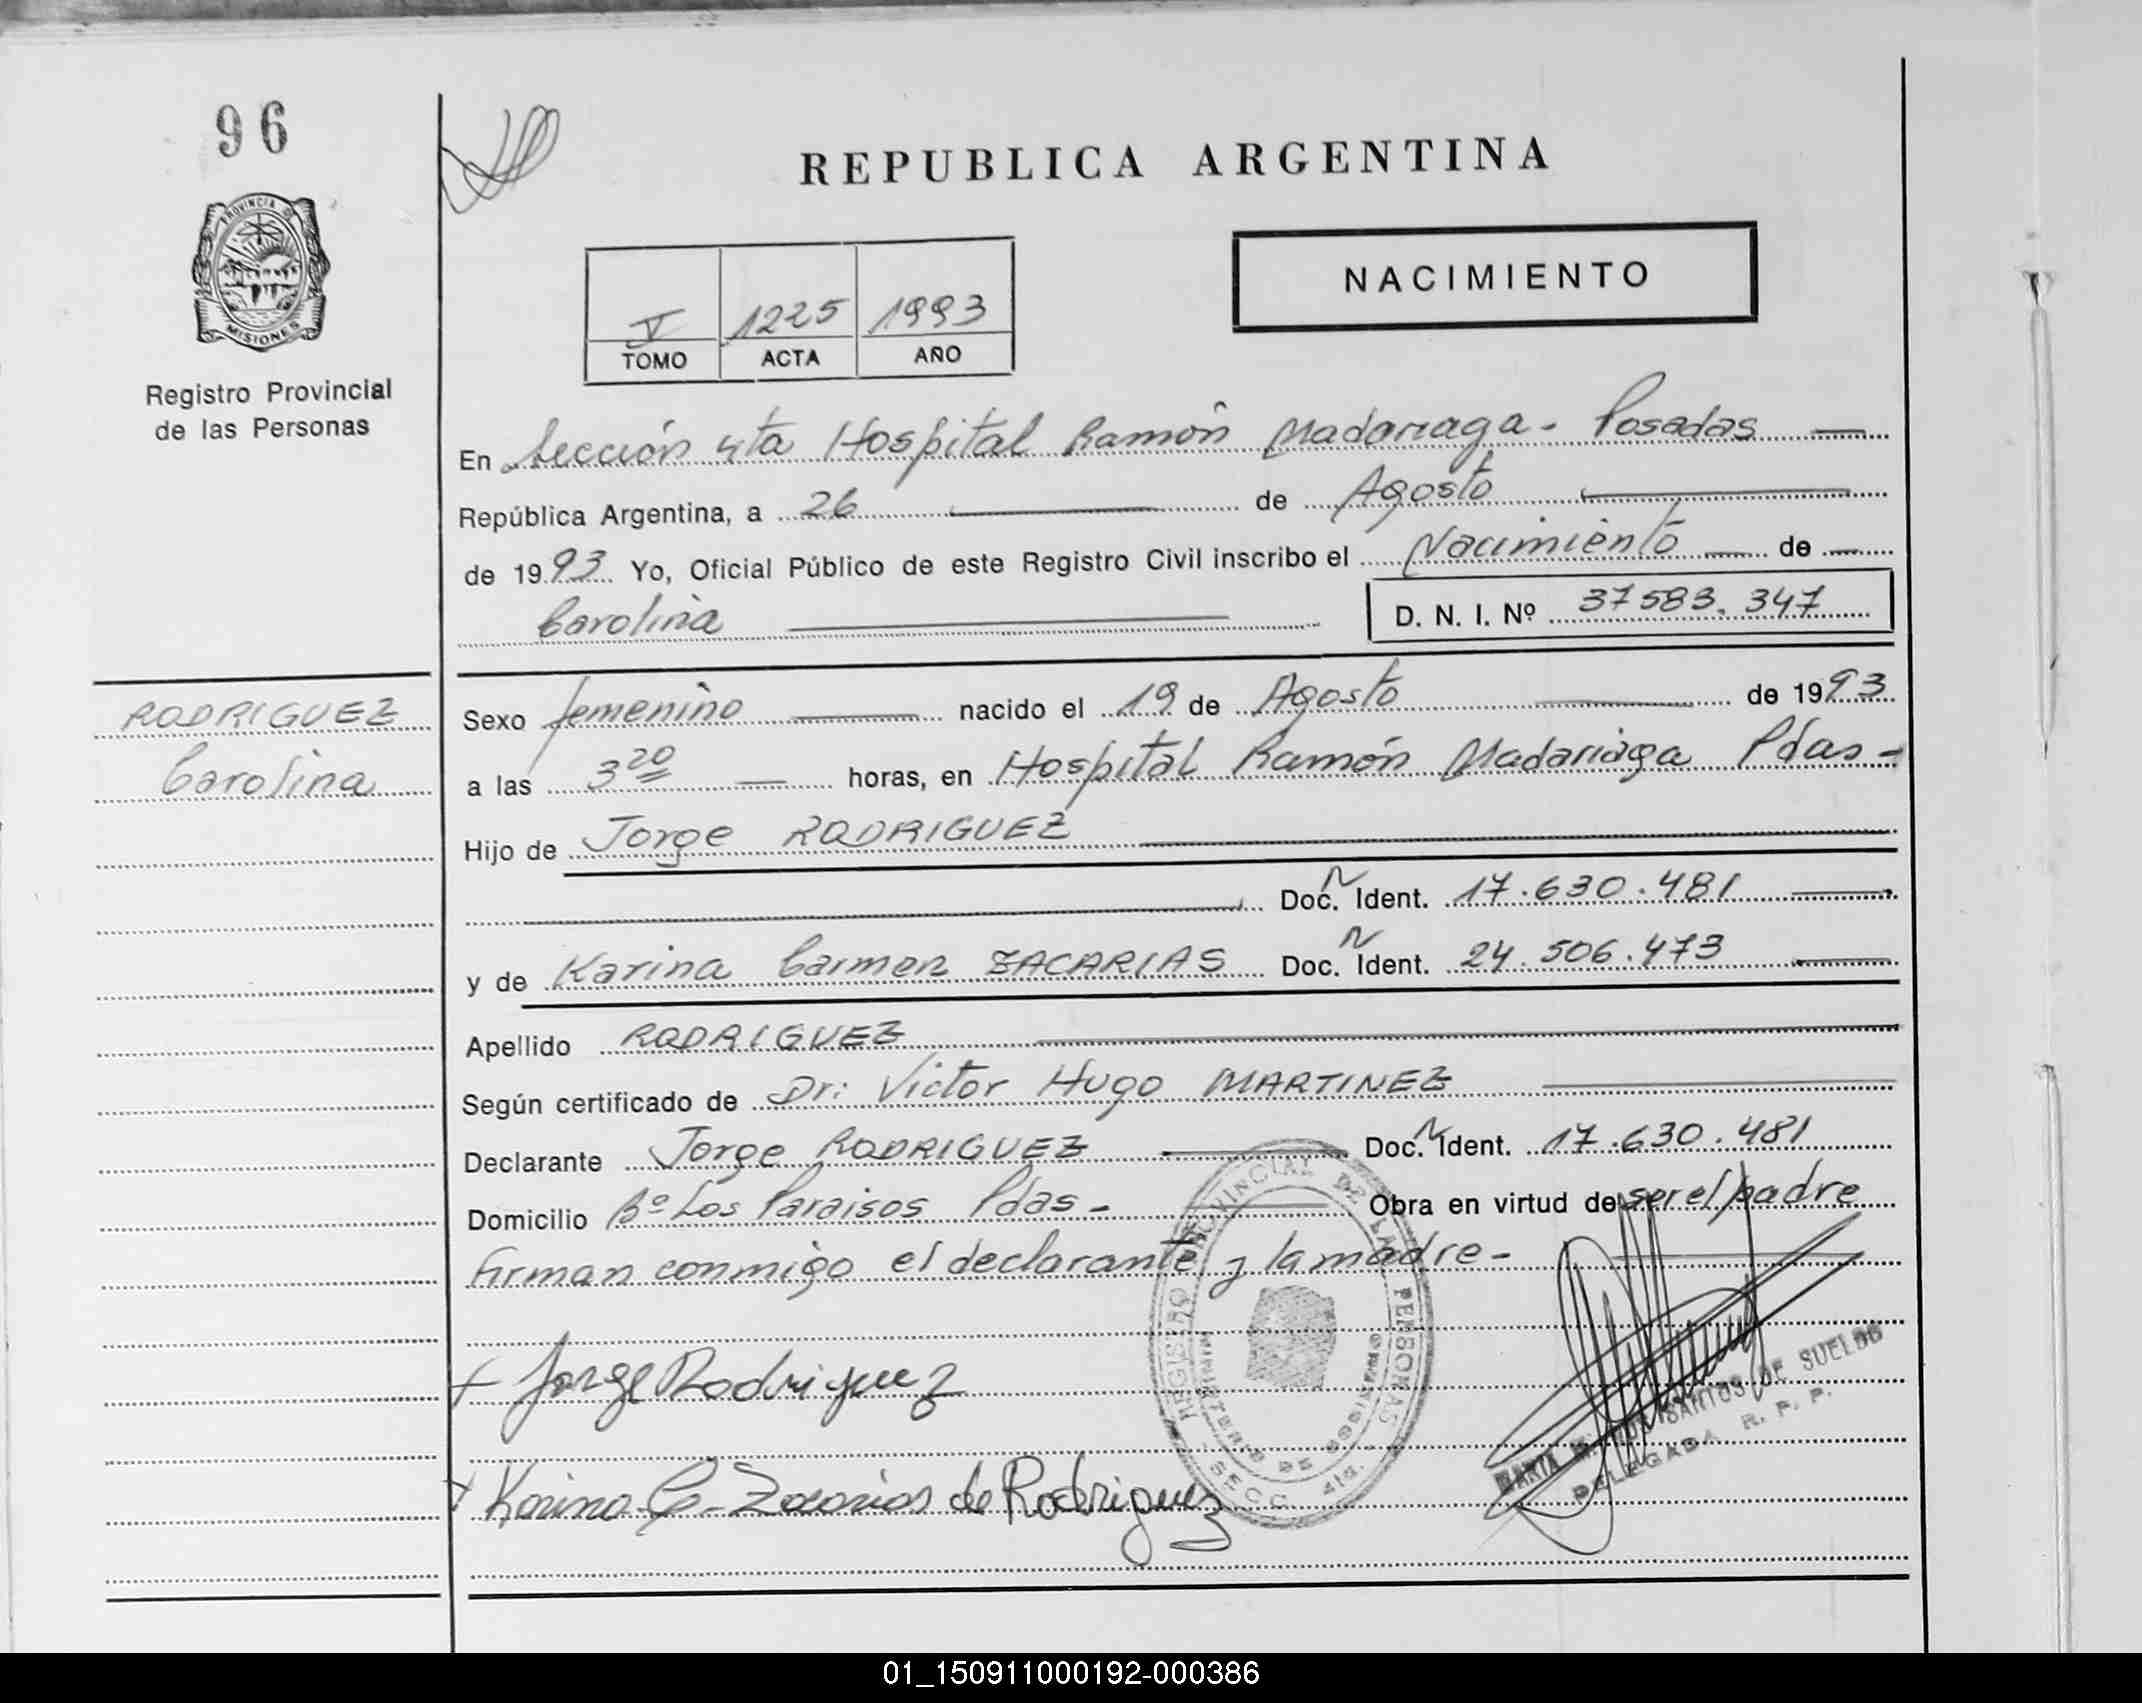 96
REPUBLICA ARGENTINA
PROVINCIA DE
MISIONES
Registro Provincial
de las Personas
NACIMIENTO
V 1225 1993
TOMO ACTA AÑO
En Sección 4ta Hospital Ramón Madariaga - Posadas
República Argentina, a 26 de Agosto
de 1993 Yo, Oficial Público de este Registro Civil inscribo el Nacimiento de
Carolina D. N. I. Nº 37583.347
RODRIGUEZ
Carolina
Sexo femenino nacido el 19 de Agosto de 1993
a las 3 20 horas, en Hospital Ramón Madariaga Pdas-
Hijo de Jorge RODRIGUEZ
Doc. N Ident. 17.630.481
y de Karina Carmen ZACARIAS Doc. N Ident. 24.506.473
Apellido RODRIGUEZ
Según certificado de Dr: Victor Hugo MARTINEZ
Declarante Jorge RODRIGUEZ Doc. N Ident. 17.630.481
Domicilio Bº Los Paraisos Pdas- Obra en virtud de ser el padre
Firman conmigo el declarante y la madre-
REGISTRO PROVINCIAL DE LAS PERSONAS
MINISTERIO DE GOBIERNO
SECC. 4ta.
Jorge Rodriguez
Karina C. Zacarias de Rodriguez
MARIA SANTOS DE SUELDO
DELEGADA R. P. P.
01_150911000192-000386